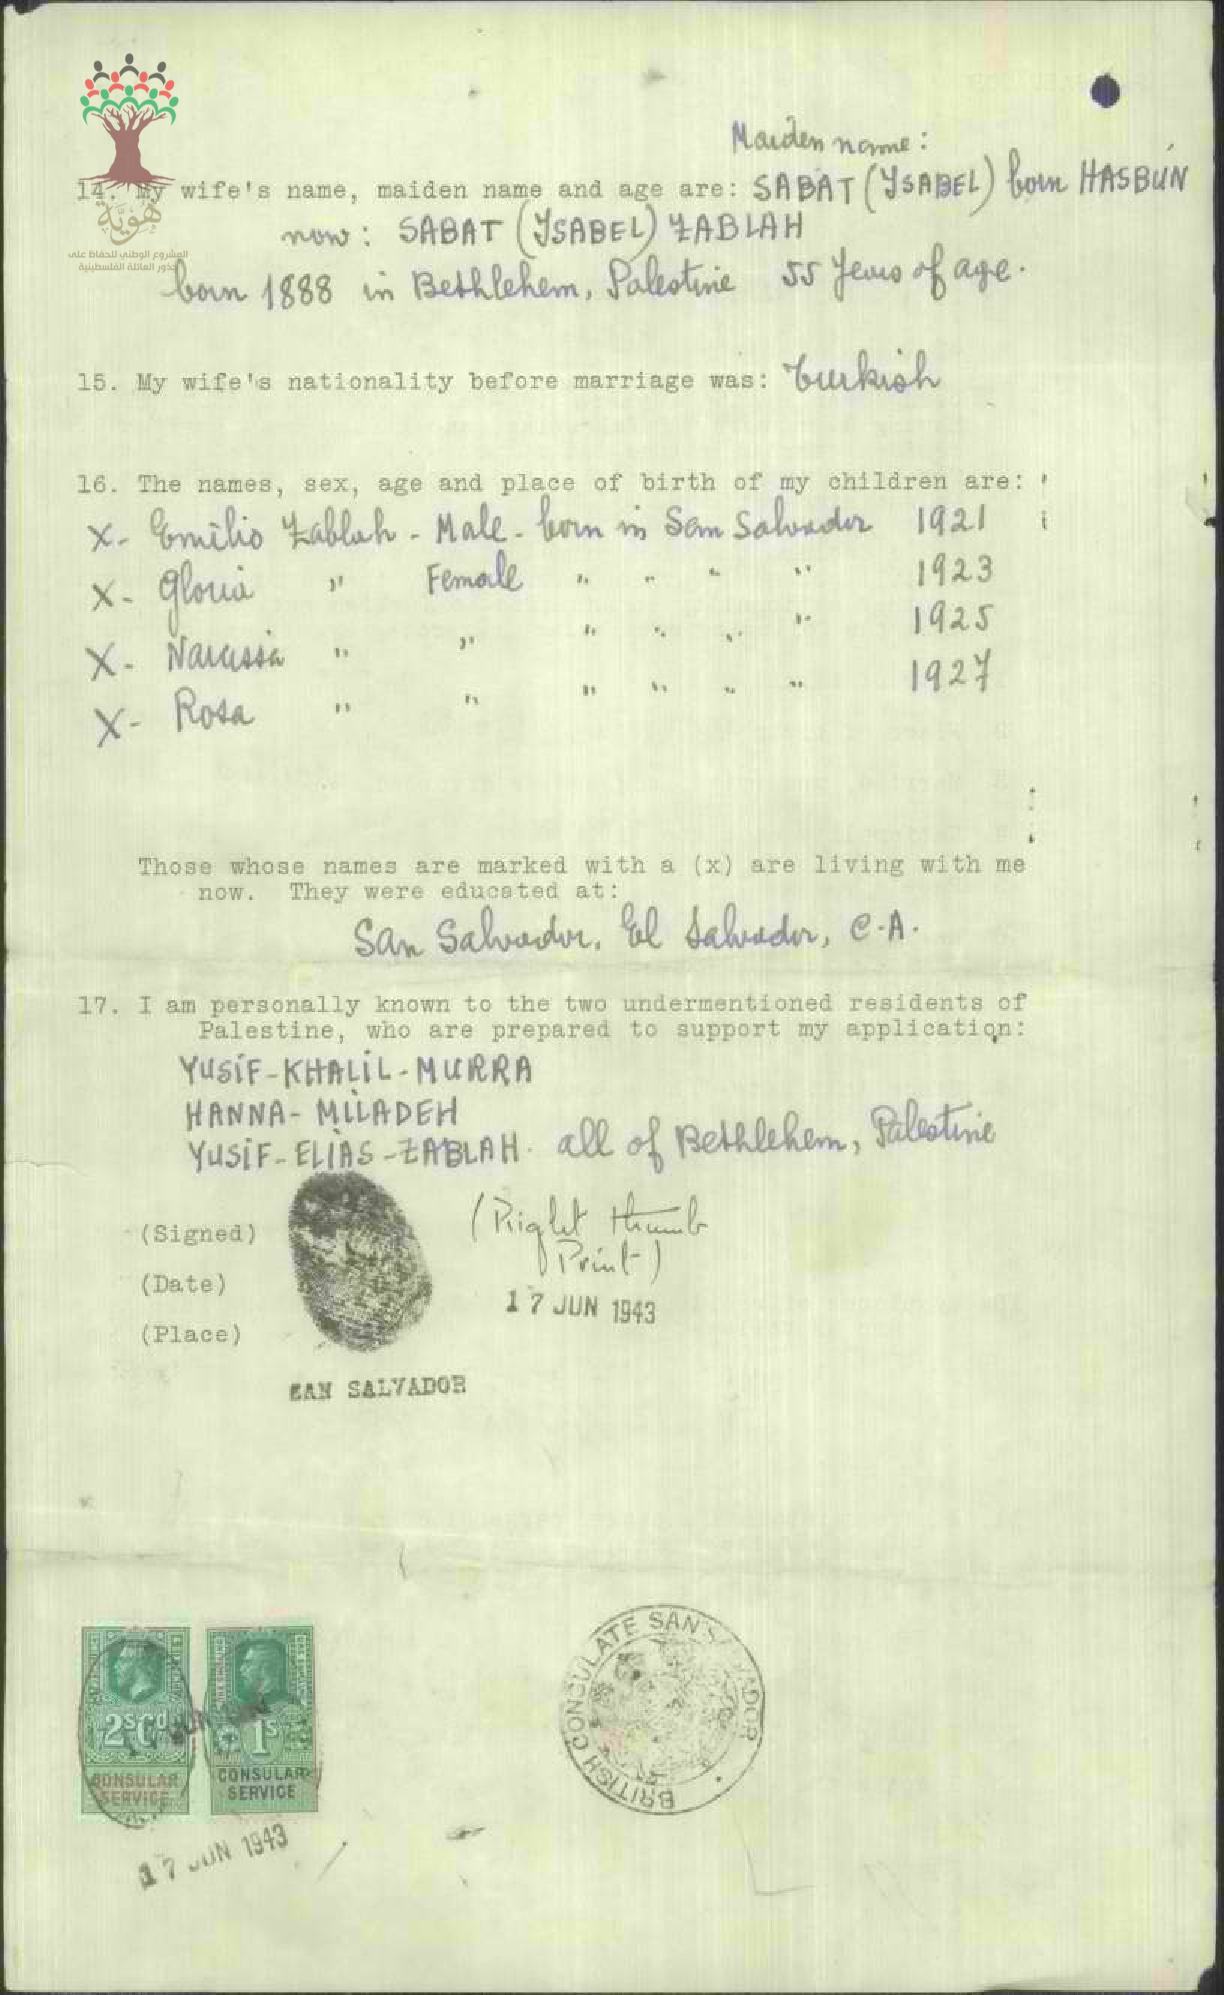 هوية
المشروع الوطني للحفاظ على
جذور العائلة الفلسطينية
Maiden name:
14. My wife's name, maiden name and age are: SABAT (YSABEL) born HASBÚN
now: SABAT (YSABEL) ZABLAH
born 1888 in Bethlehem, Palestine 55 Years of age.
15. My wife's nationality before marriage was: Turkish
16. The names, sex, age and place of birth of my children are:
X- Emilio Zablah - Male - born in San Salvador 1921
X- Gloria " Female " " " " 1923
X- Narcissa " " " " " " 1925
X- Rosa " " " " " " 1927
Those whose names are marked with a (x) are living with me
now. They were educated at:
San Salvador, El Salvador, C.A.
17. I am personally known to the two undermentioned residents of
Palestine, who are prepared to support my application:
YUSIF-KHALIL-MURRA
HANNA-MILADEH
YUSIF-ELIAS-ZABLAH. all of Bethlehem, Palestine
(Signed) (Right thumb
Print)
(Date) 17 JUN 1943
(Place)
SAN SALVADOR
BRITISH CONSULATE SAN SALVADOR
2s6d 1s
CONSULAR SERVICE
CONSULAR SERVICE
17 JUN 1943